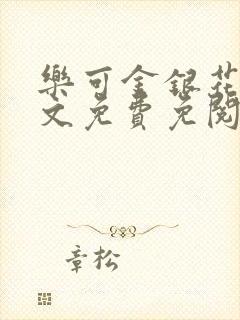 樂可金銀花
文免費免閱
章松